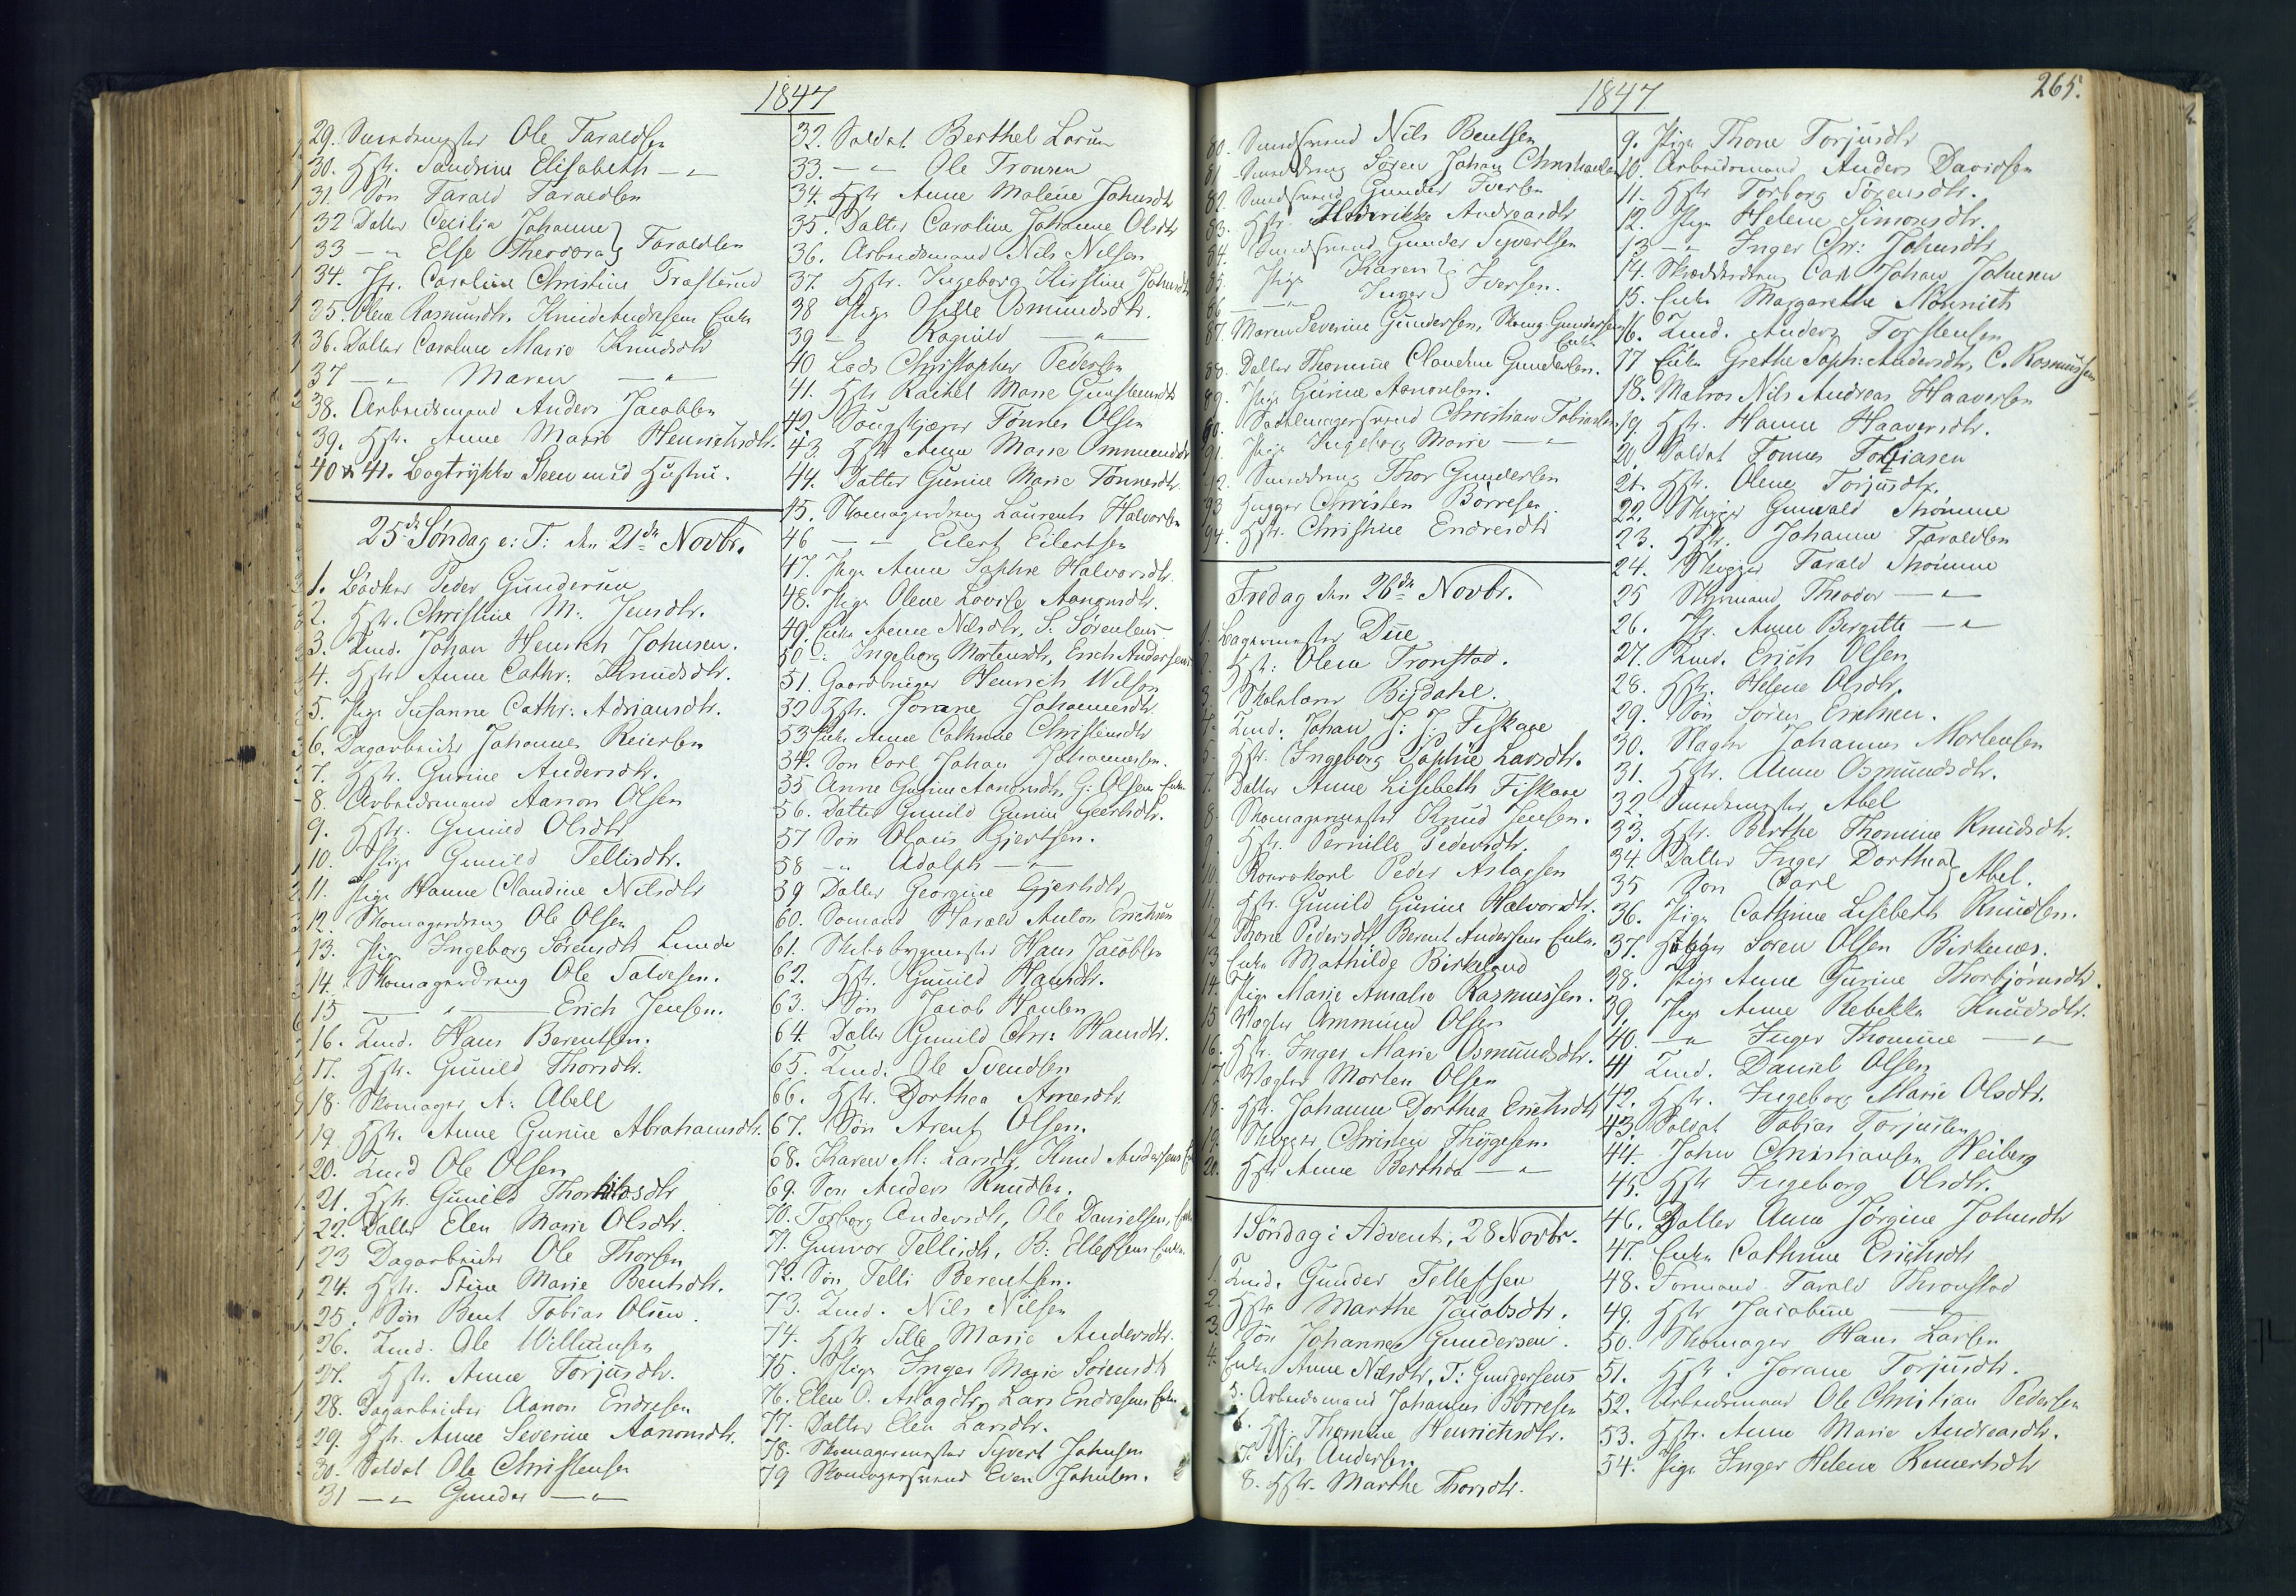 1847
29. Smedemester Ole Taraldsen
30. Hstr. Sandrine Elisabeth —"—
31. Søn Tarald Taraldsen
32 Datter Cecilia Johanne
33 —"— Else Theodora } Taraldsen
34. Jfr. Caroline Christine Trasterud
35. Olena Rasmusdtr. Knud Andresens Enke
36. Datter Caroline Marie Knudsdtr
37 —"— Maren —"—
38. Arbeidsmand Anders Jacobsen
39. Hstr. Anne Marie Henrichsdtr.
40 & 41. Bogtrykker Steen med Hustru.
25de Søndag e: T: den 21de Novbr.
1. Bødker Peder Gundersen
2. Hstr. Christine M: Jensdtr.
3. Tmd. Johan Henrich Johnsen.
4. Hstr Anne Cathr: Knudsdtr.
5. Pige Susanne Cathr: Adriansdtr.
6. Dagarbeider Johannes Reiersen
7. Hstr. Gurine Andersdtr.
8. Arbeidsmand Aanon Olsen
9. Hstr. Gunild Olsdtr
10. Pige Gunild Tellisdtr.
11. Pige Hanne Claudine Nilsdtr
12. Skomagerdreng Ole Olsen
13. Pige Ingeborg Sørensdtr Lunde
14. Skomagerdreng Ole Salvesen.
15 —"— Erich Jensen.
16. Tmd. Hans Berentsen.
17. Hstr. Gunild Thorsdtr.
18. Skomager A: Abell
19. Hstr. Anne Gurine Abrahamsdtr.
20. Tmd Ole Olsen
21. Hstr. Gunild
22. Datter Elen Marie Olsdtr.
23 Dagarbeider Ole Thorsen
24. Hstr. Stine Marie Bentsdtr.
25. Søn Bent Tobias Olsen.
26. Tmd. Ole Willumsen
27. Hstr. Anne Torjusdtr.
28. Dagarbeider Aanon Endresen
29. Hstr. Anne Severine Aanonsdtr.
30. Soldat Ole Christensen
31 —"— Gunder —"—
32. Soldat Berthel Larsen
33. —"— Ole Tronsen
34. Hstr Anne Malene Johnsdtr
35. Datter Caroline Johanne Olsdtr
36. Arbeidsmand Nils Nilsen
37. Hstr. Ingeborg Kirstine Johnsdtr
38 Pige Osille Osmundsdtr.
39 —"— Ragnild —"—
40 Lods Christopher Pedersen
41. Hstr Rachel Marie Gunstensdtr
42. Tønnes Olsen
43. Hstr Anne Marie Ommundsdtr
44. Datter Gurine Marie Tønnesdtr
45. Skomagerdreng Laurents Halvorsen
46 —"— Eilert Eilertsen
47. Pige Anne Sophie Halvorsdtr.
48. Pige Olene Lovise Aanonsdtr.
49. Enke Anne Nilsdtr. S: Sørensens
50 —"— Ingeborg Mortensdtr, Erich Andersens
51. Gaardbruger Henrich Wilson
52 Hstr. Jorane Johannesdtr
53 Enke Anne Cathrine Christensdtr
54. Søn Carl Johan Johannesen.
55 Anne Gurine Aanonsdtr, G: Olsens Enke
56. Datter Gunild Gurine Geertsdtr.
57 Søn Olaus Gjertsen.
58 —"— Adolph —"—
59 Datter Georgine Gjertsdtr
60. Sømand Harald Anton Erichsen
61. Skibsbygmester Hans Jacobsen
62. Hstr. Gunild Hansdtr.
63. Søn Jacob Hansen
64. Datter Gunild Chr: Hansdtr.
65. Tmd. Ole Svendsen
66. Hstr. Dorthea Arnesdtr.
67. Søn Arent Olsen.
68. Karen M: Larsdtr, Knud Andersens
69. Søn Anders Knudsen.
70. Torborg Andersdtr, Ole Danielsens Enke
71. Gunvor Tellisdtr. B: Ellefsens Enke.
72. Søn Telli Berentsen.
73. Tmd. Nils Nilsen
74. Hstr Sille Marie Andersdtr.
75. Pige Inger Marie Sørensdtr
76. Elen O. Aslagdtr, Lars Endresens Enke
77. Datter Elen Larsdtr.
78. Skomagermester Syvert Johnsen
79 Skomagersvend Even Johnsen.
1847
265.
80. Smedsvend Nils Bentsen
81 Smeddreng Søren Johan Christiansen
82. Smedsvend Gunder Iversen
83. Hstr. Hederikke Andreasdtr
84. Smedsvend Gunder Syvertsen
85. Pige Karen
86 —"— Inger } Iversen.
87. Maren Severine Gundersen, Gundersens Enke
88. Datter Thomine Claudine Gundersen.
89. Pige Gurine Aanonsen.
90. Sadelmagersvend Christian Tobiasen
91. Pige Ingeborg Marie —"—
92. Smeddreng Thor Gundersen
93 Hugger Christen Børresen.
94. Hstr. Christine Endresdtr
Fredag den 26de Novbr.
1. Bagermester Due
2. Hstr: Olena Tronstad.
3. Skolelærer Bigdahl.
4. Tmd. Johan J: J: Fiskaae
5. Hstr. Ingeborg Sophie Larsdtr.
7. Datter Anne Lisebeth Fiskaae
8. Skomagermester Knud Jensen.
9. Hstr. Pernille Pedersdtr.
10. Rorerkarl Peder Aslagsen
11. Hstr. Gunild Gurine Halvorsdtr.
12 Thone Pedersdtr Berent Andersens Enke.
13 Enke Mathilde Birkeland
14. Pige Marie Amalie Rasmussen.
15 Vægter Ommund Olsen
16. Hstr. Inger Marie Osmundsdtr.
17 Vægter Morten Olsen
18. Hstr. Johanne Dorthea Erichsdtr
19. Skipper Christen Thygesen.
20. Hstr Anne Berthea —"—
1 Söndag i Advent, 28 Novbr.
1. Tmd. Gunder Tellefsen
2. Hstr Marthe Jacobsdtr.
3. Søn Johannes Gundersen.
4. Enke Anne Nilsdtr, T: Gundersens
5. Arbeidsmand Johannes Børresen
6. Hstr. Thomine Henrichsdtr.
7. Nils Andersen.
8. Hstr. Marthe Thorsdtr.
9. Pige Thone Torjusdtr
10. Arbeidsmand Anders Davidsen
11. Hstr Torborg Sørensdtr.
12. Pige Helene Simonsdtr.
13 —"— Inger Chr: Johnsdtr
14. Skrædderdreng Carl Johan Johnsen
15. Enke Margarethe Mönnich
16. Tmd. Anders Torstensen
17 Enke Grethe Soph: Andersdtr, C. Rasmussens
18. Matros Nils Andreas Haaversen
19 Hstr. Hanne Haaversdtr.
20. Soldat Tønnes Tobiasen
21. Hstr. Olene Torjusdtr.
22. Skipper Gunvald Thömme
23. Hstr. Johanne Taraldsen
24. Skipper Tarald Thömme
25 Styrmand Theodor —"—
26. Jfr. Anne Bergitte —"—
27. Tmd. Erich Olsen
28. Hstr. Helene Olsdtr.
29. Søn Søren Erichsen.
30. Slagter Johannes Mortensen
31. Hstr. Anne Osmundsdtr.
32. Smedemester Abel
33. Hstr. Berthe Thomine Knudsdtr.
34. Datter Inger Dorthea
35 Søn Carl } Abel.
36. Pige Cathrine Lisebeth Knudsen.
37. Søren Olsen Birkenes.
38. Pige Anne Gurine Thorbjørnsdtr.
39. Pige Anne Rebekka Knudsdtr.
40. —"— Inger Thomine —"—
41 Tmd. Daniel Olsen
42. Hstr. Ingeborg Marie Olsdtr.
43. Soldat Tobias Torjusen
44. John Christiansen Heiberg
45. Hstr Ingeborg Olsdtr.
46. Datter Anne Jørgine Johnsdtr
47. Enke Cathrine Erichsdtr
48. Formand Tarald Thronstad
49. Hstr Jacobine —"—
50. Skomager Hans Larsen
51. Hstr. Jorane Torjusdtr.
52. Arbeidsmand Ole Christian Pedersen
53. Hstr. Anne Marie Andreasdtr.
54. Pige Inger Helene Remertsdtr